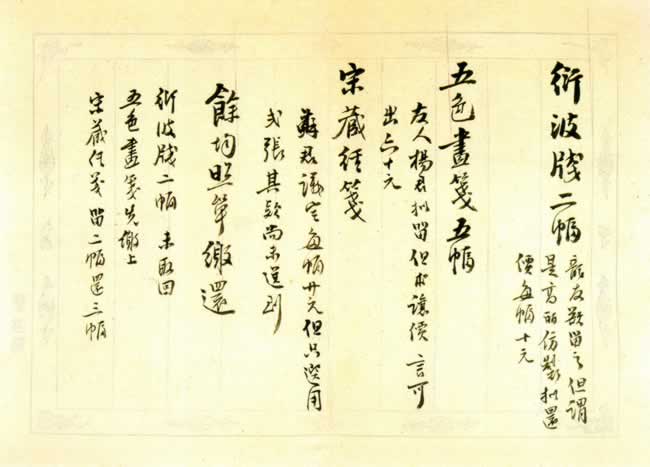 衍波牋二幅
龍友欲留之但謂
是高丽仿製拟還
價每幅十元
五色畫箋五幅
友人楊君拟留但求讓價言可
出六十元
宋藏經箋
蘇君議定每幅廿元但只選用
弍張其款尚未送到
餘均照单繳還
衍波牋二幅 未取回
五色畫箋先繳上
宋藏经笺留二幅還三幅